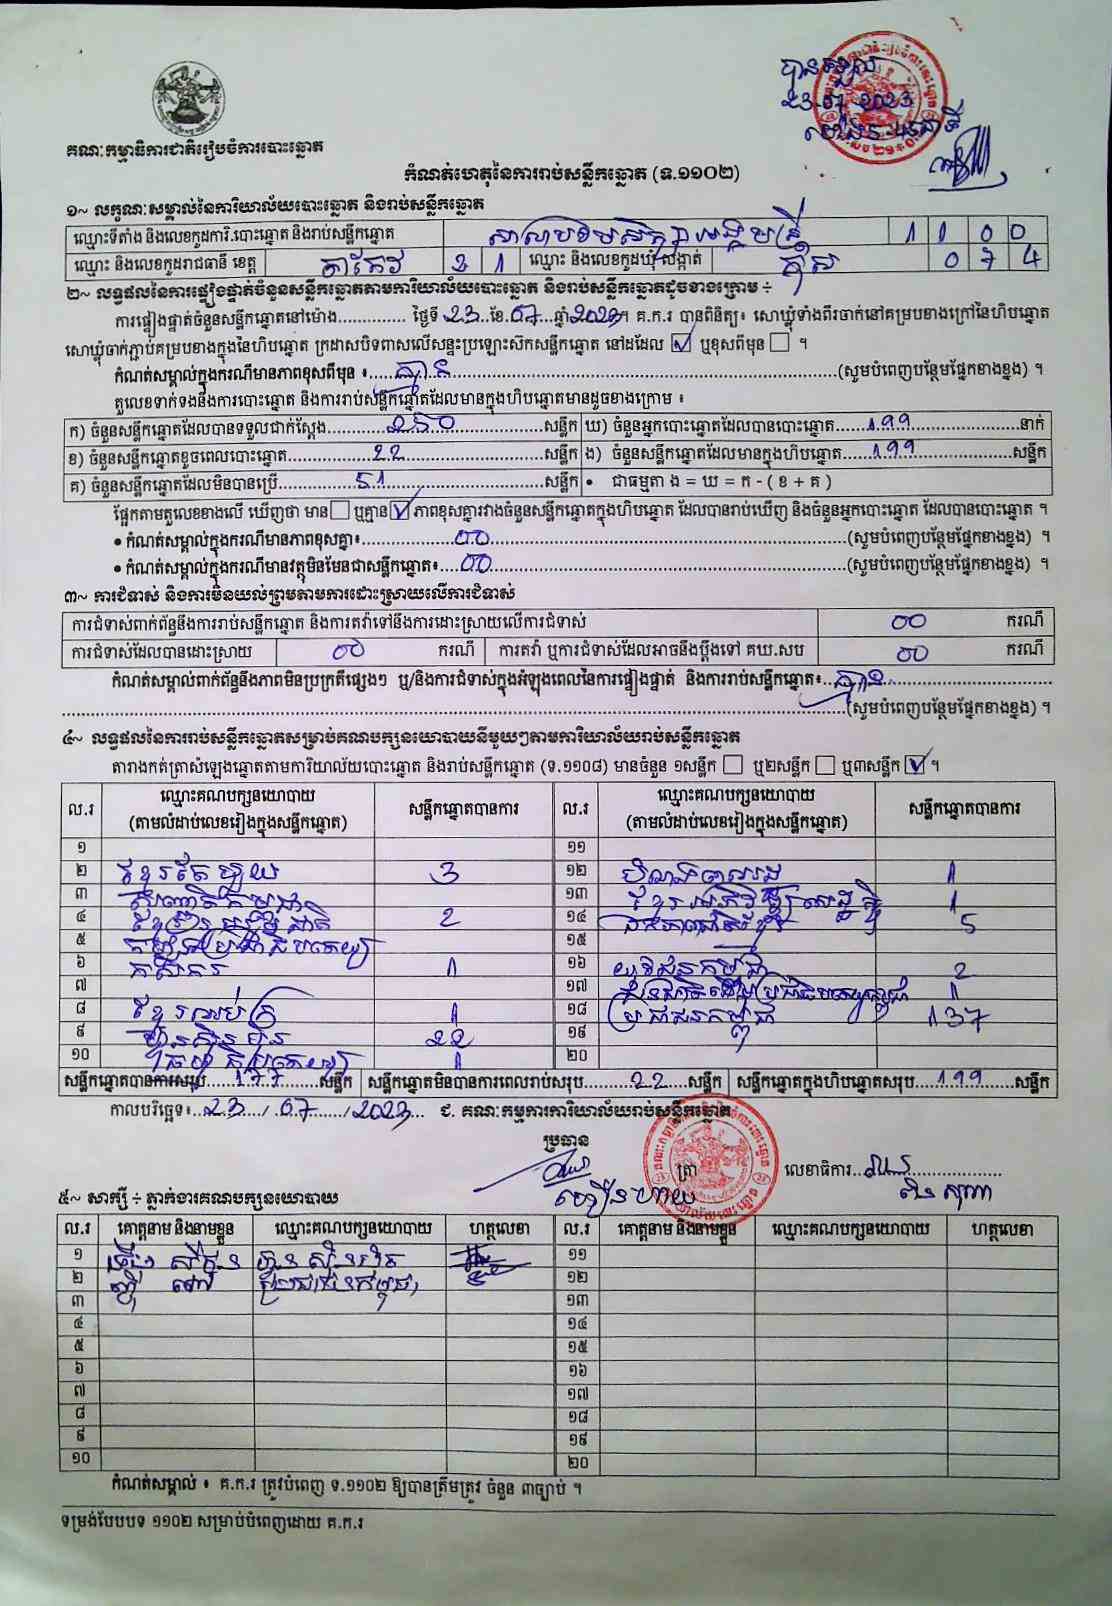 បានទទួល
23-07-2023
គណៈកម្មាធិការជាតិរៀបចំការបោះឆ្នោត
កំណត់ហេតុនៃការរាប់សន្លឹកឆ្នោត (ទ.១១០២)
១~ លក្ខណៈសម្គាល់នៃការិយាល័យបោះឆ្នោត និងរាប់សន្លឹកឆ្នោត
ឈ្មោះទីតាំង និងលេខកូដការិ.បោះឆ្នោត និងរាប់សន្លឹកឆ្នោត 1100
ឈ្មោះ និងលេខកូដរាជធានី ខេត្ត តាកែវ 21 ឈ្មោះ និងលេខកូដឃុំ សង្កាត់ 074
២~ លទ្ធផលនៃការផ្ទៀងផ្ទាត់ចំនួនសន្លឹកឆ្នោតតាមការិយាល័យបោះឆ្នោត និងរាប់សន្លឹកឆ្នោតដូចខាងក្រោម ÷
ការផ្ទៀងផ្ទាត់ចំនួនសន្លឹកឆ្នោតនៅម៉ោង.............. ថ្ងៃទី 23 ខែ 07 ឆ្នាំ 2023 ។ គ.ក.រ បានពិនិត្យ៖ សោឃ្លុំទាំងពីរចាក់នៅគម្របខាងក្រៅនៃហិបឆ្នោត
សោឃ្លុំចាក់ភ្ជាប់គម្របខាងក្នុងនៃហិបឆ្នោត ក្រដាសបិទពាសលើសន្ទះប្រឡោះសឹកសន្លឹកឆ្នោត នៅដដែល ☑ ឬខុសពីមុន ☐ ។
កំណត់សម្គាល់ក្នុងករណីមានភាពខុសពីមុន ៖ គ្មាន (សូមបំពេញបន្ថែមផ្នែកខាងខ្នង) ។
តួលេខទាក់ទងនឹងការបោះឆ្នោត និងការរាប់សន្លឹកឆ្នោតដែលមានក្នុងហិបឆ្នោតមានដូចខាងក្រោម ៖
ក) ចំនួនសន្លឹកឆ្នោតដែលបានទទួលជាក់ស្តែង 250 សន្លឹក ឃ) ចំនួនអ្នកបោះឆ្នោតដែលបានបោះឆ្នោត 199 នាក់
ខ) ចំនួនសន្លឹកឆ្នោតខូចពេលបោះឆ្នោត 22 សន្លឹក ង) ចំនួនសន្លឹកឆ្នោតដែលមានក្នុងហិបឆ្នោត 199 សន្លឹក
គ) ចំនួនសន្លឹកឆ្នោតដែលមិនបានប្រើ 51 សន្លឹក • ជាធម្មតា ង = ឃ = ក - ( ខ + គ )
ផ្អែកតាមតួលេខខាងលើ ឃើញថា មាន ☐ ឬគ្មាន ☑ ភាពខុសគ្នារវាងចំនួនសន្លឹកឆ្នោតក្នុងហិបឆ្នោត ដែលបានរាប់ឃើញ និងចំនួនអ្នកបោះឆ្នោត ដែលបានបោះឆ្នោត ។
• កំណត់សម្គាល់ក្នុងករណីមានភាពខុសគ្នា៖ 00 (សូមបំពេញបន្ថែមផ្នែកខាងខ្នង) ។
• កំណត់សម្គាល់ក្នុងករណីមានវត្ថុមិនមែនជាសន្លឹកឆ្នោត៖ 00 (សូមបំពេញបន្ថែមផ្នែកខាងខ្នង) ។
៣~ ការជំទាស់ និងការមិនយល់ព្រមតាមការដោះស្រាយលើការជំទាស់
ការជំទាស់ពាក់ព័ន្ធនឹងការរាប់សន្លឹកឆ្នោត និងការតវ៉ាទៅនឹងការដោះស្រាយលើការជំទាស់ 00 ករណី
ការជំទាស់ដែលបានដោះស្រាយ 00 ករណី ការតវ៉ា ឬការជំទាស់ដែលអាចនឹងប្តឹងទៅ គឃ.សប 00 ករណី
កំណត់សម្គាល់ពាក់ព័ន្ធនឹងភាពមិនប្រក្រតីផ្សេងៗ ឬ/និងការជំទាស់ក្នុងអំឡុងពេលនៃការផ្ទៀងផ្ទាត់ និងការរាប់សន្លឹកឆ្នោត៖ គ្មាន
(សូមបំពេញបន្ថែមផ្នែកខាងខ្នង) ។
៤~ លទ្ធផលនៃការរាប់សន្លឹកឆ្នោតសម្រាប់គណបក្សនយោបាយនីមួយៗតាមការិយាល័យរាប់សន្លឹកឆ្នោត
តារាងកត់ត្រាសំឡេងឆ្នោតតាមការិយាល័យបោះឆ្នោត និងរាប់សន្លឹកឆ្នោត (ទ.១១០៨) មានចំនួន ១សន្លឹក ☐ ឬ២សន្លឹក ☐ ឬ៣សន្លឹក ☑ ។
ល.រ ឈ្មោះគណបក្សនយោបាយ សន្លឹកឆ្នោតបានការ ល.រ ឈ្មោះគណបក្សនយោបាយ សន្លឹកឆ្នោតបានការ
(តាមលំដាប់លេខរៀងក្នុងសន្លឹកឆ្នោត) (តាមលំដាប់លេខរៀងក្នុងសន្លឹកឆ្នោត)
១ ១១
២ ខ្មែរតែមួយ 3 ១២ 1
៣ ១៣ 1
៤ 2 ១៤ 5
៥ ១៥
៦ កសិករ 1 ១៦ យុវជនកម្ពុជា 2
៧ ១៧ 1
៨ 1 ១៨ ប្រជាជនកម្ពុជា 137
៩ ហ៊្វុនស៊ិនប៉ិច 22 ១៩
១០ 1 ២០
សន្លឹកឆ្នោតបានការសរុប 177 សន្លឹក សន្លឹកឆ្នោតមិនបានការពេលរាប់សរុប 22 សន្លឹក សន្លឹកឆ្នោតក្នុងហិបឆ្នោតសរុប 199 សន្លឹក
កាលបរិច្ឆេទ៖ 23 / 07 / 2023 ជ. គណៈកម្មការការិយាល័យរាប់សន្លឹកឆ្នោត
ប្រធាន
ត្រា លេខាធិការ
៥~ សាក្សី ÷ ភ្នាក់ងារគណបក្សនយោបាយ
ល.រ គោត្តនាម និងនាមខ្លួន ឈ្មោះគណបក្សនយោបាយ ហត្ថលេខា ល.រ គោត្តនាម និងនាមខ្លួន ឈ្មោះគណបក្សនយោបាយ ហត្ថលេខា
១ ហ៊្វុនស៊ិនប៉ិច ១១
២ ប្រជាជនកម្ពុជា ១២
៣ ១៣
៤ ១៤
៥ ១៥
៦ ១៦
៧ ១៧
៨ ១៨
៩ ១៩
១០ ២០
កំណត់សម្គាល់ ៖ គ.ក.រ ត្រូវបំពេញ ទ.១១០២ ឱ្យបានត្រឹមត្រូវ ចំនួន ៣ច្បាប់ ។
ទម្រង់បែបបទ ១១០២ សម្រាប់បំពេញដោយ គ.ក.រ